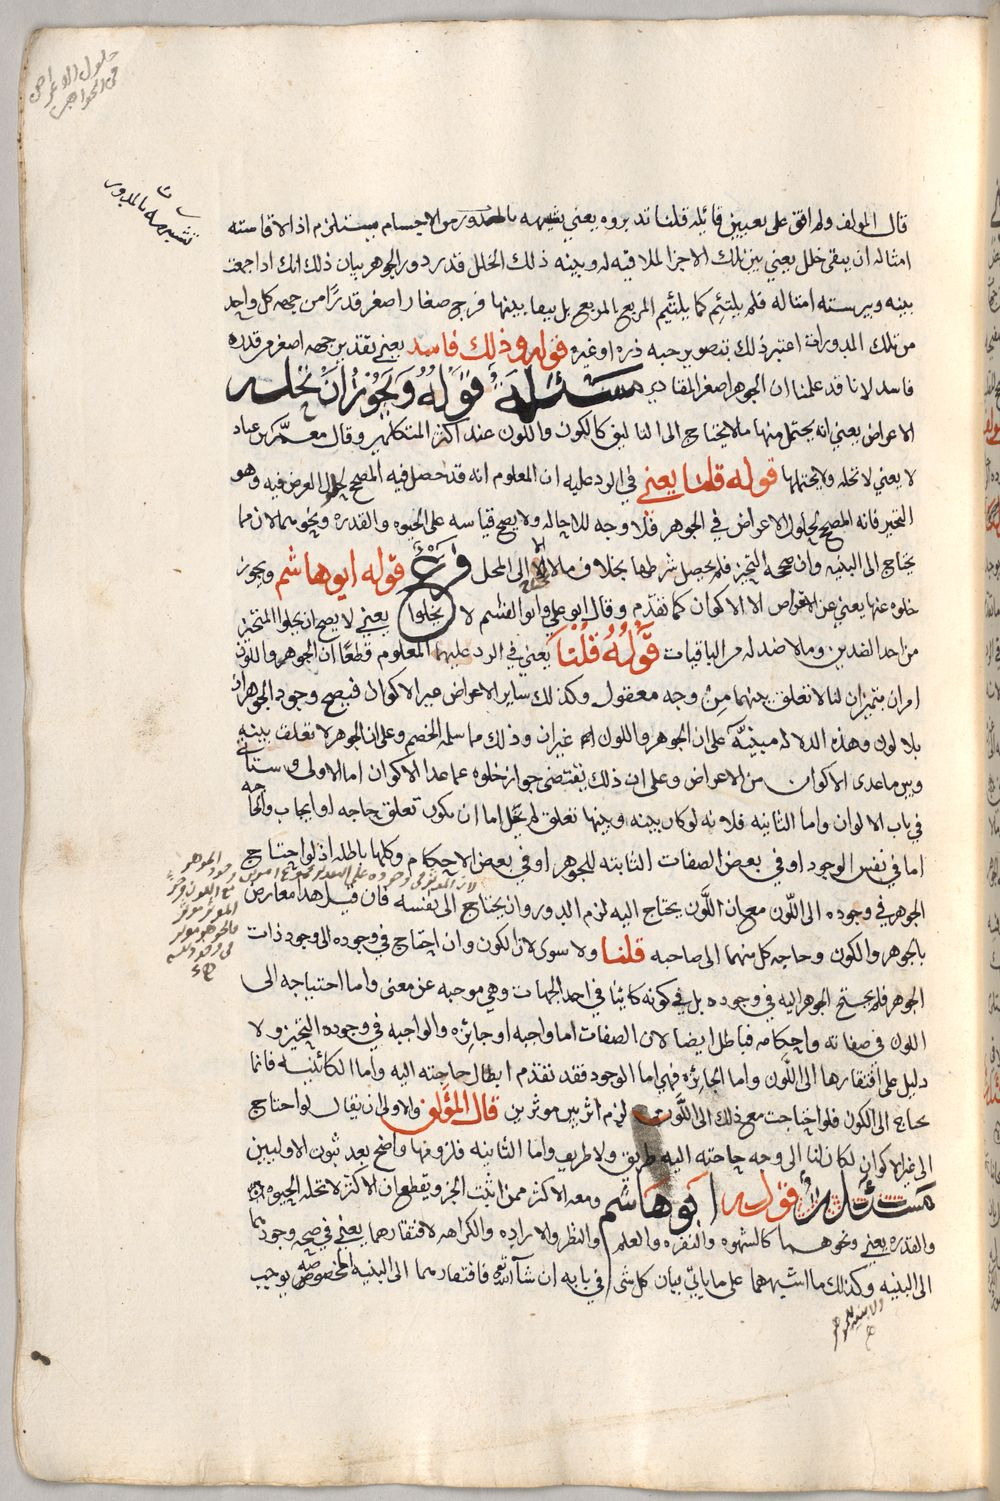 حلول الاعراض
في الجواهر
تشبيهه بالمدور
قال المولف ولم اقف على تعيين قائله قلنا تدبروه يعني تشبيهه بالمدور من الاجسام يستلزم اذا لاقا سته
امثاله ان يبقى خلل يعني بين تلك الاجزا الملاقيه له وبينه ذلك الخلل قدر دور الجوهر بيان ذلك انك اذا جمعت
بينه وبين سته امثاله فلم يلتئم كما يلتئم المربع المربع بل يبقا بينها فرج صغار اصغر قدرًا من جهه كل واحد
من تلك المدورات اعتبر ذلك بتصوير حبه ذره او غيره قوله وذلك فاسد يعني تقدير جهه اصغر من قدره
فاسد لانا قد علمنا ان الجوهر اصغر المقادير مسئلة قوله ويجوز ان تحله
الاعراض يعني انه يحتمل منها ما لا يحتاج الى التاليف كالكون واللون عند اكثر المتكلمين وقال معمر بن عباد
لا يعني لا تحله ولا يحتملها قوله قلنا يعني في الرد عليه ان المعلوم انه قد حصل فيه المصحح لحلول العرض فيه وهو
التحيز فانه المصحح لحلول الاعراض في الجوهر فلا وجه للاحاله ولا يصح قياسه على الحيوه والقدره ونحوهما لانهما
يحتاج الى البنيه وان صححه التحيز فلم يحصل شرطها بخلاف ما لا يحتاج الا الى المحل فرع قوله ابو هاشم ويجوز
خلوه عنها يعني عن الاعراض الا الاكوان كما تقدم وقال ابو علي وابو القسم لا يخلوا يعني لا يصح ان يخلوا المتحيز
من احد الضدين وما لا ضد له من الباقيات قوله قلنا يعني في الرد عليهما المعلوم قطعًا ان الجوهر واللون
امران متميزان لنا لا تعلق بينهما من وجه معقول وكذلك ساير الاعراض غير الاكوان فيصح وجود الجوهر
بلا لون وهذه الدلاله مبنيه على ان الجوهر واللون غيران وذلك مما سلمه الخصم وعلى ان الجوهر لا تعلق بينه
وبين ما عدى الاكوان من الاعراض وعلى ان ذلك يقتضى جواز خلوه عما عدا الاكوان اما الاولى وستاتي
في باب الالوان واما الثانيه فلانه لو كان بينه وبينها تعلق لم يخل اما ان يكون تعلق حاجه او ايجاب والحاجه
اما في نفس الوجود او في بعض الصفات الثابته للجوهر او في بعض الاحكام وكلها باطله اذ لو احتاج
الجوهر في وجوده الى اللون مع ان اللون يحتاج اليه لزم الدور وان يحتاج الى نفسه فان قيل هذا معارض
بالجوهر والكون وحاجه كل منهما الى صاحبه قلنا ولا سوى لان الكون وان احتاج في وجوده الى وجود ذات
الجوهر فلم يحتج الجوهر اليه في وجوده بل في كونه كائنا في احد الجهات وهي موجبه عن معنى واما احتياجه الى
اللون في صفاته واحكامه فباطل ايضا لان الصفات اما واجبه او جائزه والواجبه في وجوده التحيز ولا
دليل على افتقارها الى اللون واما الجائزه فهي اما الوجود فقد تقدم ابطال حاجته اليه واما الكائنيه فانما
يحتاج الى الكون فلو احتاجت مع ذلك الى اللون لزم اثر بين موثرين قال المؤلف والاولى ان يقال لو احتاج
الى غير الاكوان لكان لنا الى وجه حاجته اليه طريق ولا طريق واما الثانيه فلزومها واضح بعد ثبوت الاوليين
مسئلة قوله ابو هاشم ومعه الاكثر ممن اثبت الجزء ويقطع ان الاكثر لا تحله الحيوه
والقدره يعني ونحوهما كالشهوه والنفره والعلم والنظر والاراده والكراهه لافتقارهما يعني في صحه وجودهما
الى البنيه وكذلك ما اشبههما على ما ياتي بيان كل شى في بابه ان شآ الله تعالى فافتقارهما الى البنيه المخصوصه يوجب
ولا بنيه للجوهر